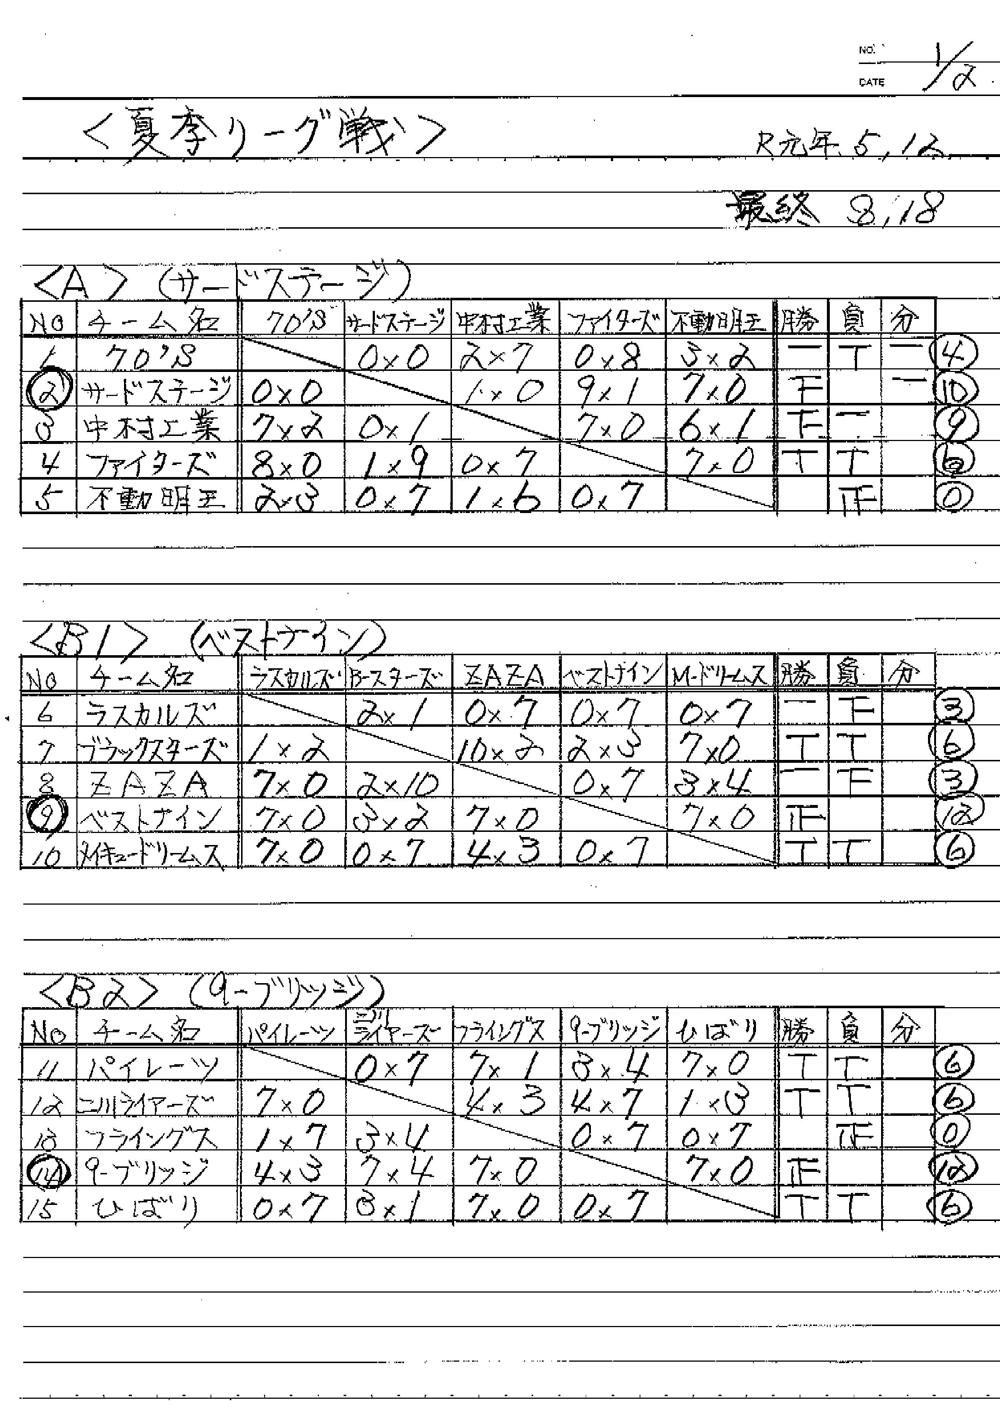 NO. 1/2
DATE
<夏季リーグ戦> R元年.5,12
最終 8,18
<A> (サードステージ)
NO チーム名 70'S サードステージ 中村工業 ファイターズ 不動明王 勝 負 分
1 70'S 0×0 2×7 0×8 3×2 一 T 一 ④
② サードステージ 0×0 1×0 9×1 7×0 下 一 ⑩
3 中村工業 7×2 0×1 7×0 6×1 下 一 ⑨
4 ファイターズ 8×0 1×9 0×7 7×0 T T ⑥
5 不動明王 2×3 0×7 1×6 0×7 正 ⓪
<B1> (ベストナイン)
NO チーム名 ラスカルズ B-スターズ ZAZA ベストナイン M-ドリームス 勝 負 分
6 ラスカルズ 2×1 0×7 0×7 0×7 一 下 ③
7 ブラックスターズ 1×2 10×2 2×3 7×0 T T ⑥
8 ZAZA 7×0 2×10 0×7 3×4 一 下 ③
⑨ ベストナイン 7×0 3×2 7×0 7×0 正 ⑫
10 メイキュードリームス 7×0 0×7 4×3 0×7 T T ⑥
<B2> (9-ブリッジ)
NO チーム名 パイレーツ 二川ライヤーズ フライングス 9-ブリッジ ひばり 勝 負 分
11 パイレーツ 0×7 7×1 3×4 7×0 T T ⑥
12 二川ライヤーズ 7×0 4×3 4×7 1×3 T T ⑥
13 フライングス 1×7 3×4 0×7 0×7 正 ⓪
⑭ 9-ブリッジ 4×3 7×4 7×0 7×0 正 ⑫
15 ひばり 0×7 3×1 7×0 0×7 T T ⑥